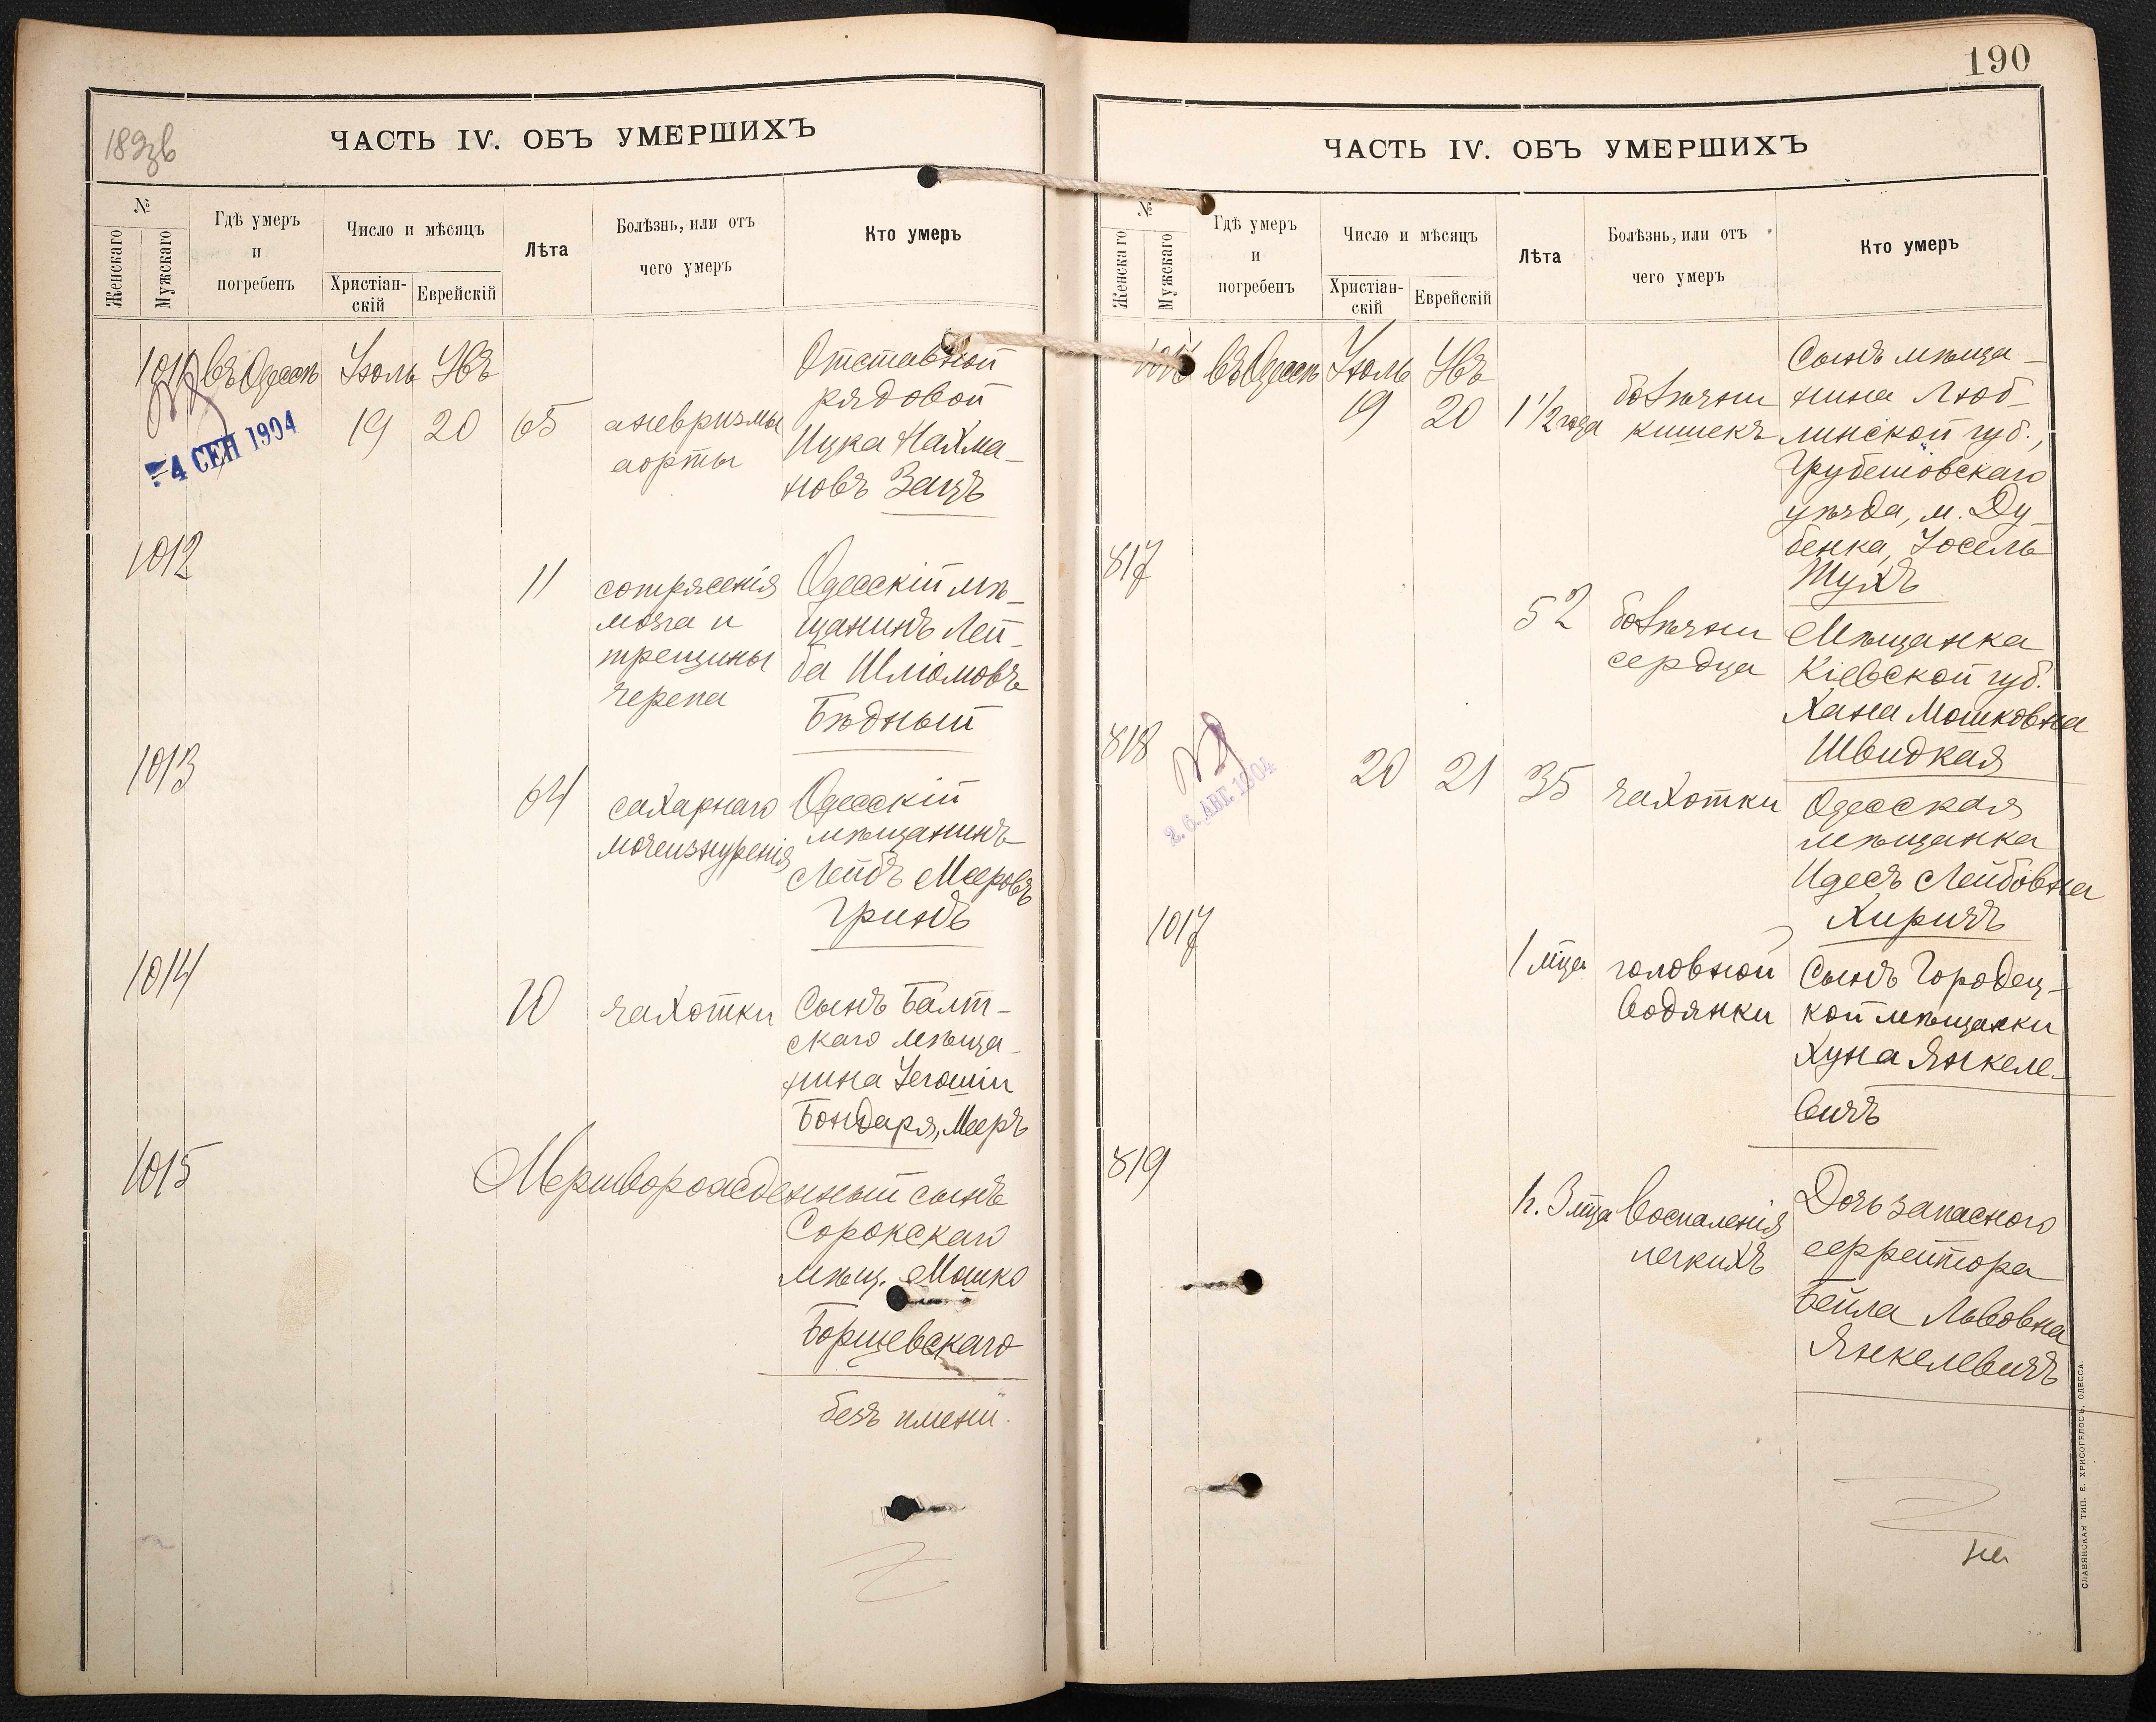 189 зв
ЧАСТЬ IV. ОБЪ УМЕРШИХЪ
№
Женскаго
Мужскаго
Гдѣ умеръ
и
погребенъ
Число и мѣсяцъ
Христіан-
скій
Еврейскій
Лѣта
Болѣзнь, или отъ
чего умеръ
Кто умеръ
1011
въ Одессѣ
Іюль
19
Увъ
20
65
аневризмы
аорты
Отставной
рядовой
Ицка Нахма-
новъ Зацъ
4 СЕН 1904
1012
11
сотрясенія
мозга и
трещины
черепа
Одесскій мѣ-
щанинъ Лей-
ба Шліомовъ
Бѣдный
1013
64
сахарнаго
мочеизнуренія
Одесскій
мѣщанинъ
Лейбъ Мееровъ
Гринъ
1014
20
чахотки
Сынъ Балт-
скаго мѣща-
нина Іегошіи
Бондаря, Мееръ
1015
Мертворожденный сынъ
Сорокскаго
мѣщ. Мошко
Борщевскаго
безъ имени.
190
ЧАСТЬ IV. ОБЪ УМЕРШИХЪ
№
Женскаго
Мужскаго
Гдѣ умеръ
и
погребенъ
Число и мѣсяцъ
Христіан-
скій
Еврейскій
Лѣта
Болѣзнь, или отъ
чего умеръ
Кто умеръ
1016
въ Одессѣ
Іюль
19
Увъ
20
1 1/2 года
болѣзни
кишекъ
Сынъ мѣща-
нина Люб-
линской губ.,
Грубешовскаго
уѣзда, м. Ду-
бенка, Іосель
Тухъ
817
52
болѣзни
сердца
Мѣщанка
Кіевской губ.
Хана Мошковна
Швидкая
818
2.6. АВГ. 1904
20
21
35
чахотки
Одесская
мѣщанка
Идесъ Лейбовна
Хиричъ
1017
1 мца
головной
водянки
Сынъ Городец-
кой мѣщанки
Хуна Янкеле-
вичъ
819
1 г. 3 мца
воспаленія
легкихъ
Дочь запасного
ефрейтора
Бейла Львовна
Янкелевичъ
на
СЛАВЯНСКАЯ ТИП. Е. ХРИСОГЕЛОСЪ, ОДЕССА.